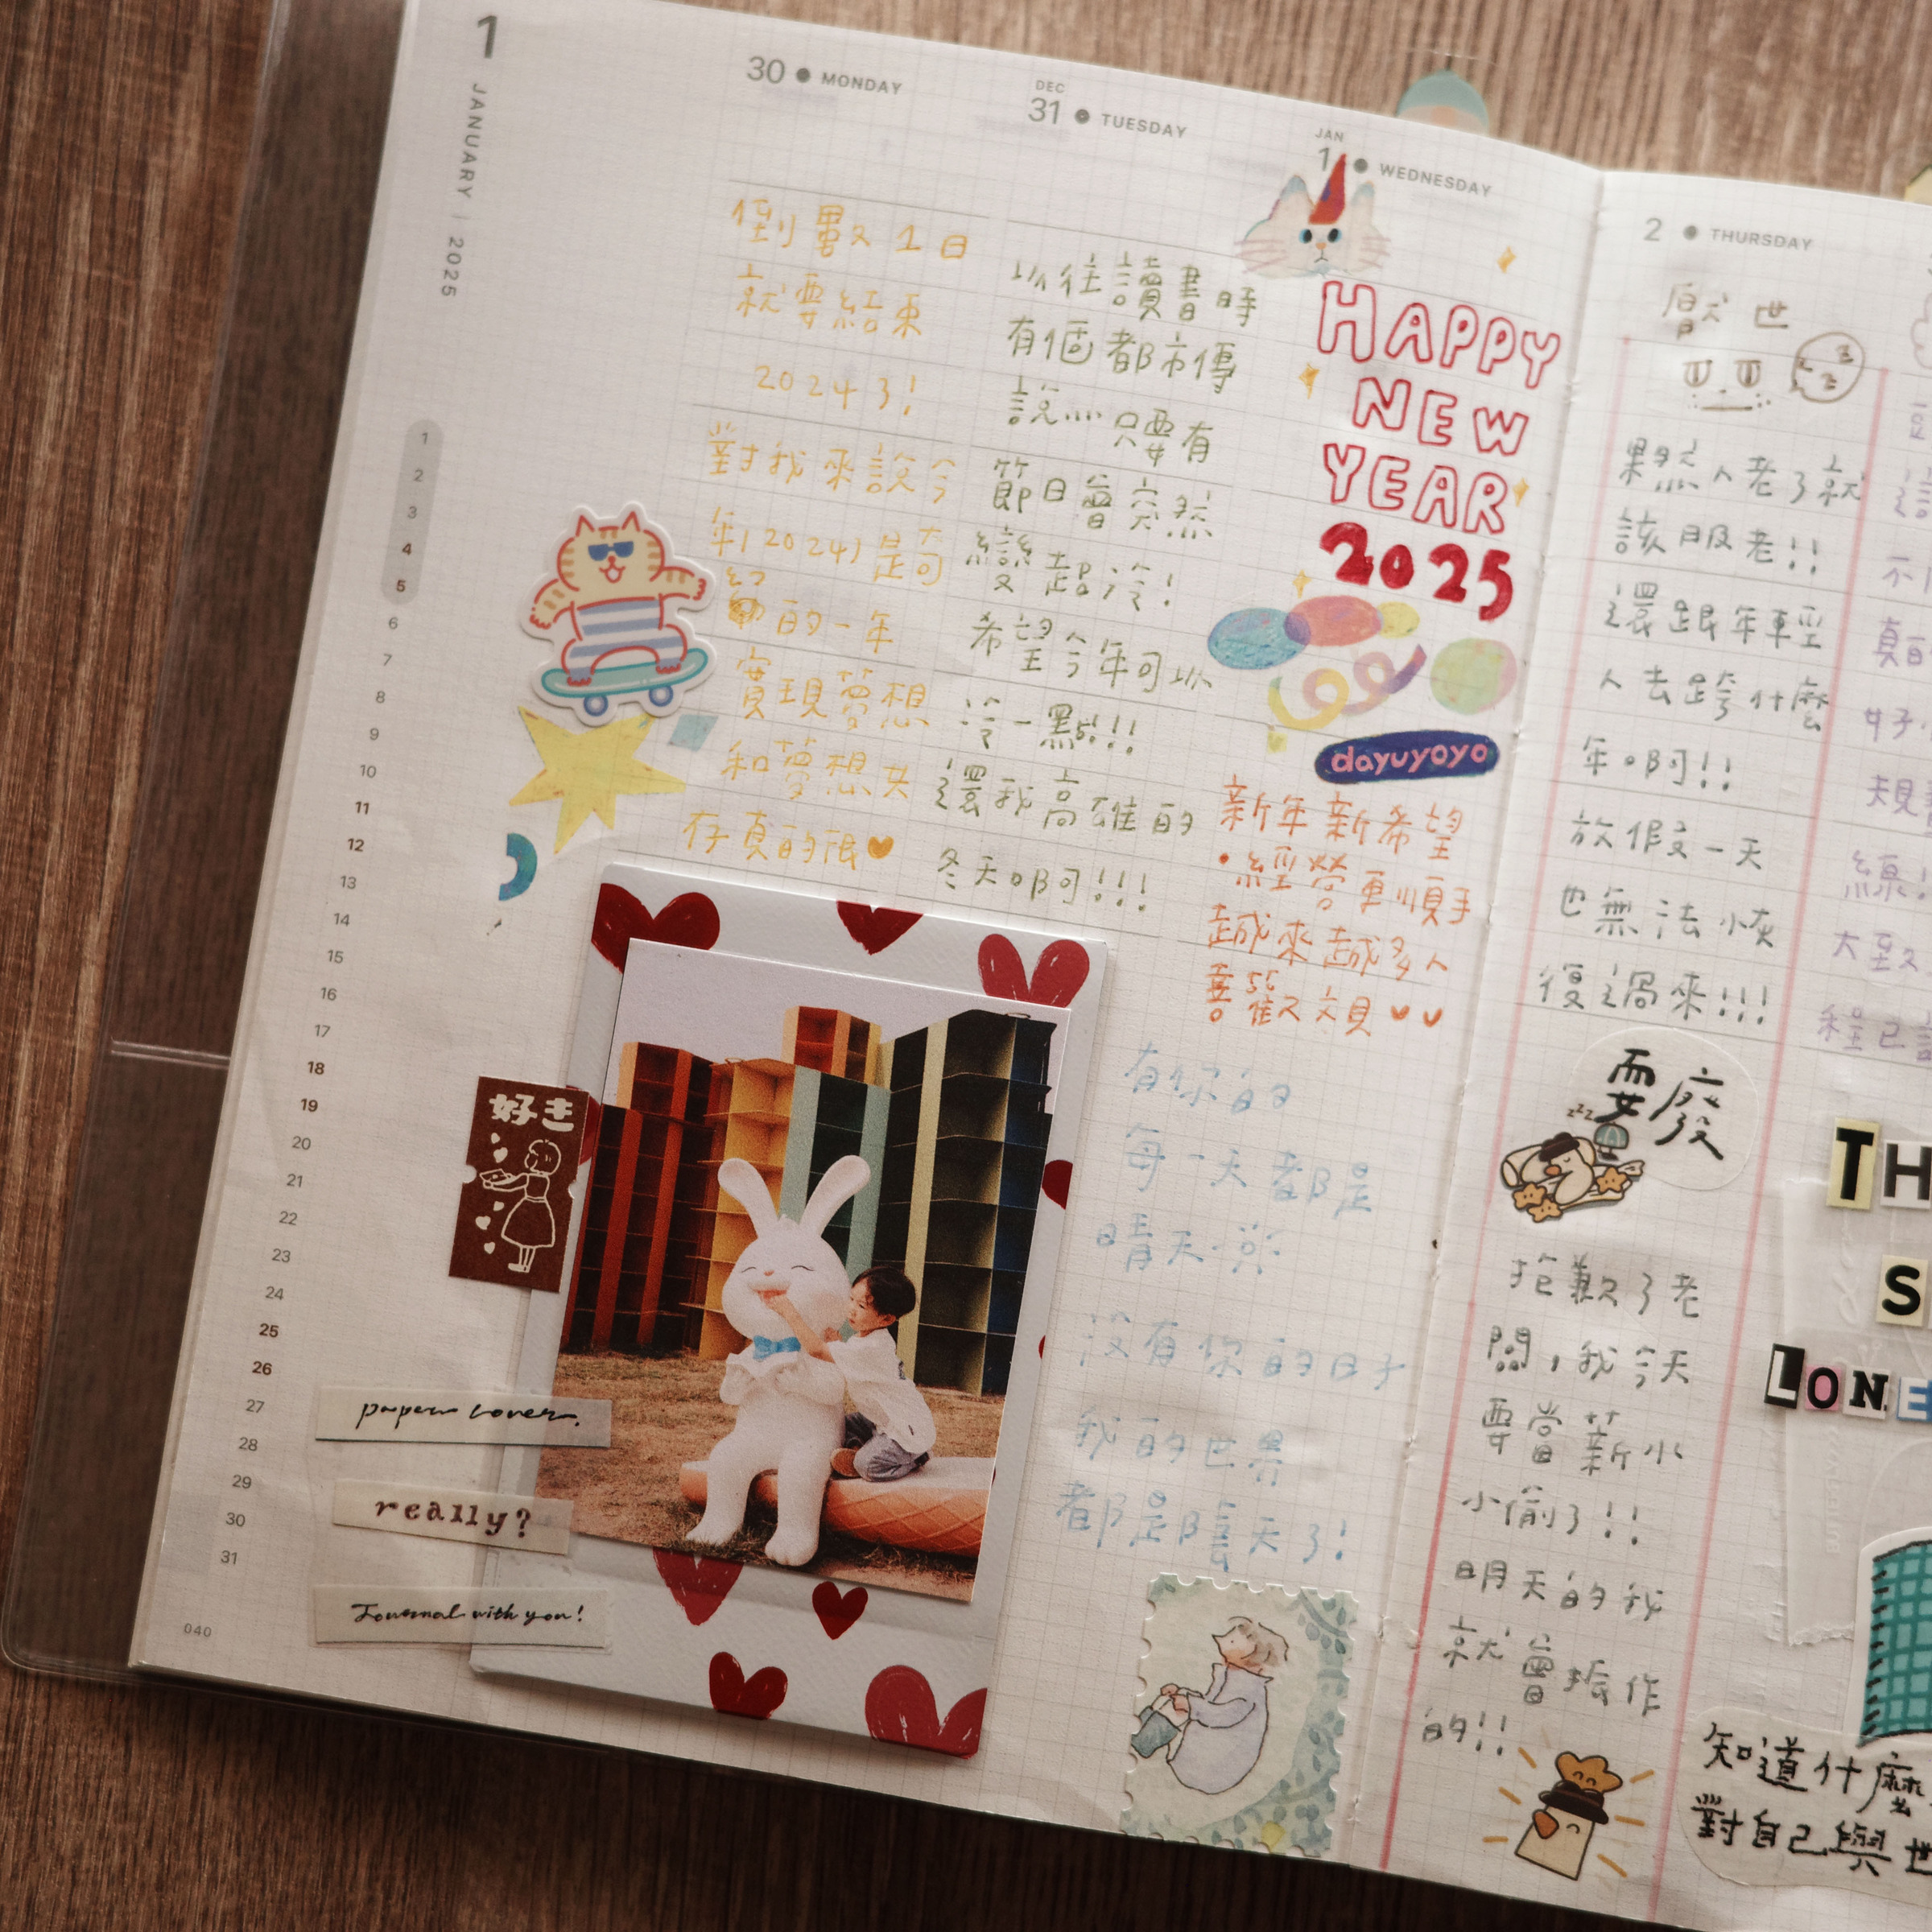 1
JANUARY | 2025
30 • MONDAY
倒數1日
就要結束
2024了!
對我來說今
年(2024)是奇
幻的一年
實現夢想
和夢想共
存真的很
DEC
31 • TUESDAY
以往讀書時
有個都市傳
說...只要有
節日會突然
變超冷!
希望今年可以
冷一點!!!
還我高雄的
冬天啊!!!
JAN
1 • WEDNESDAY
HAPPY
NEW
YEAR
2025
dayuyoyo
新年新希望
•經營更順手
越來越多人
喜歡大貝
有你的
每一天都是
晴天
沒有你的日子
我的世界
都是陰天了!
2 • THURSDAY
厭世
果然人老了就
該服老!!
還跟年輕
人去跨什麼
年啊!!
放假一天
也無法恢
復過來!!!
要廢
zzz
抱歉了老
闆,我今天
要當薪水
小偷了!!
明天的我
就會振作
的!!
1
2
3
4
5
6
7
8
9
10
11
12
13
14
15
16
17
18
19
20
21
22
23
24
25
26
27
28
29
30
31
040
好き
paper lover.
really?
Journal with you!
TH
S
LONE
知道什麼
對自己與世